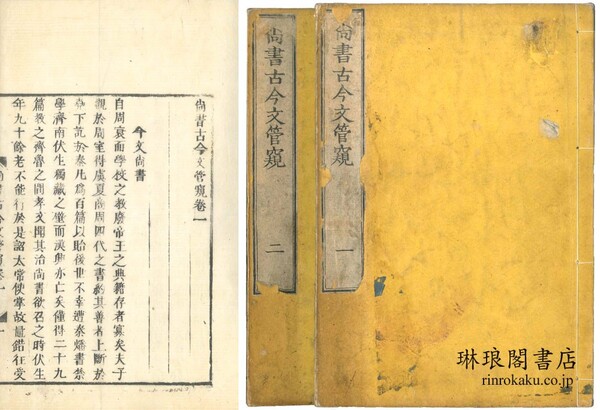 尚書古今文管窺卷一
今文尚書
自周衰而學校之教廢帝王之典籍存者寡矣夫子
觀於周室得虞夏商周四代之書約其善者上斷於
堯下訖於秦凡為百篇以貽後世不幸遭秦燔書禁
學濟南伏生獨藏之壁而漢興亦亡矣僅得二十九
篇教之齊魯之間孝文聞其治尚書欲召之時伏生
年九十餘老不能行於是詔太常使掌故鼂錯往受
尚書古今文管窺 一
尚書古今文管窺 二
琳琅閣書店
rinrokaku.co.jp